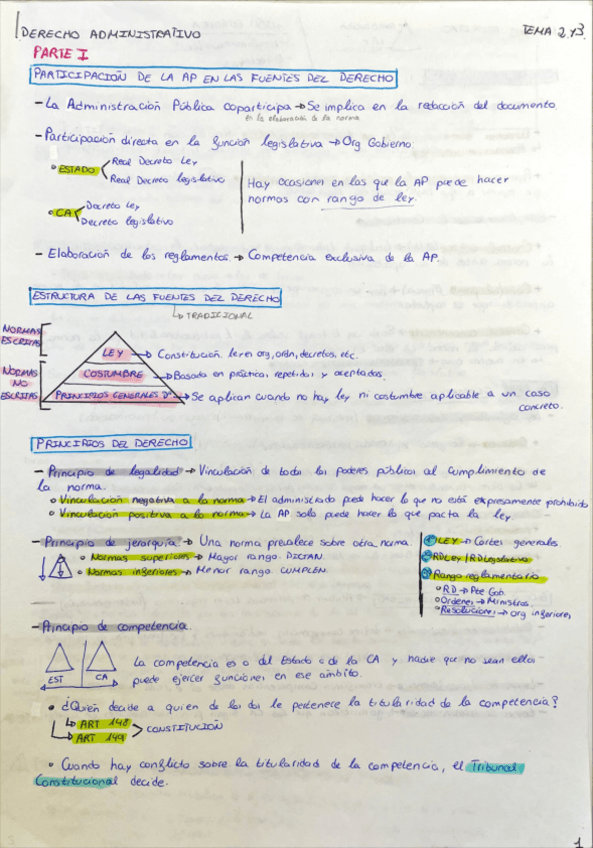 DERECHO ADMINISTRATIVO
TEMA 2 y 3
PARTE I
PARTICIPACIÓN DE LA AP EN LAS FUENTES DEL DERECHO
- La Administración Pública coparticipa → Se implica en la redacción del documento.
en la elaboración de la norma
- Participación directa en la función legislativa → Org Gobierno.
ESTADO
Real Decreto Ley
Real Decreto legislativo
CA
Decreto Ley
Decreto legislativo
Hay ocasiones en las que la AP puede hacer
normas con rango de ley.
- Elaboración de los reglamentos. → Competencia exclusiva de la AP.
ESTRUCTURA DE LAS FUENTES DEL DERECHO
↳ TRADICIONAL
NORMAS
ESCRITAS
NORMAS
NO
ESCRITAS
LEY → Constitución, leyes org, ordin, decretos, etc.
COSTUMBRE → Basada en prácticas, repetidos y aceptados.
PRINCIPIOS GENERALES Dº → Se aplican cuando no hay ley ni costumbre aplicable a un caso
concreto.
PRINCIPIOS DEL DERECHO
- Principio de legalidad → Vinculación de todos los poderes públicos al cumplimiento de
la norma.
Vinculación negativa a la norma → El administrado puede hacer lo que no está expresamente prohibido
Vinculación positiva a la norma → La AP solo puede hacer lo que pacta la ley.
- Principio de jerarquía → Una norma prevalece sobre otra norma
Normas superiores → Mayor rango. DICTAN.
Normas inferiores → Menor rango. CUMPLEN.
1º LEY → Cortes generales.
2º RDLey / RDLegislativo
3º Rango reglamentario
RD → Pte Gob.
Ordenes → Ministros.
Resoluciones → Org inferiores
- Principio de competencia
EST
CA
La competencia es o del Estado o de la CA y nadie que no sean ellos
puede ejercer funciones en ese ámbito.
• ¿Quién decide a quien de los dos le pertenece la titularidad de la competencia?
↳ ART 148
↳ ART 149
CONSTITUCIÓN
• Cuando hay conflicto sobre la titularidad de la competencia, el Tribunal
Constitucional decide.
1